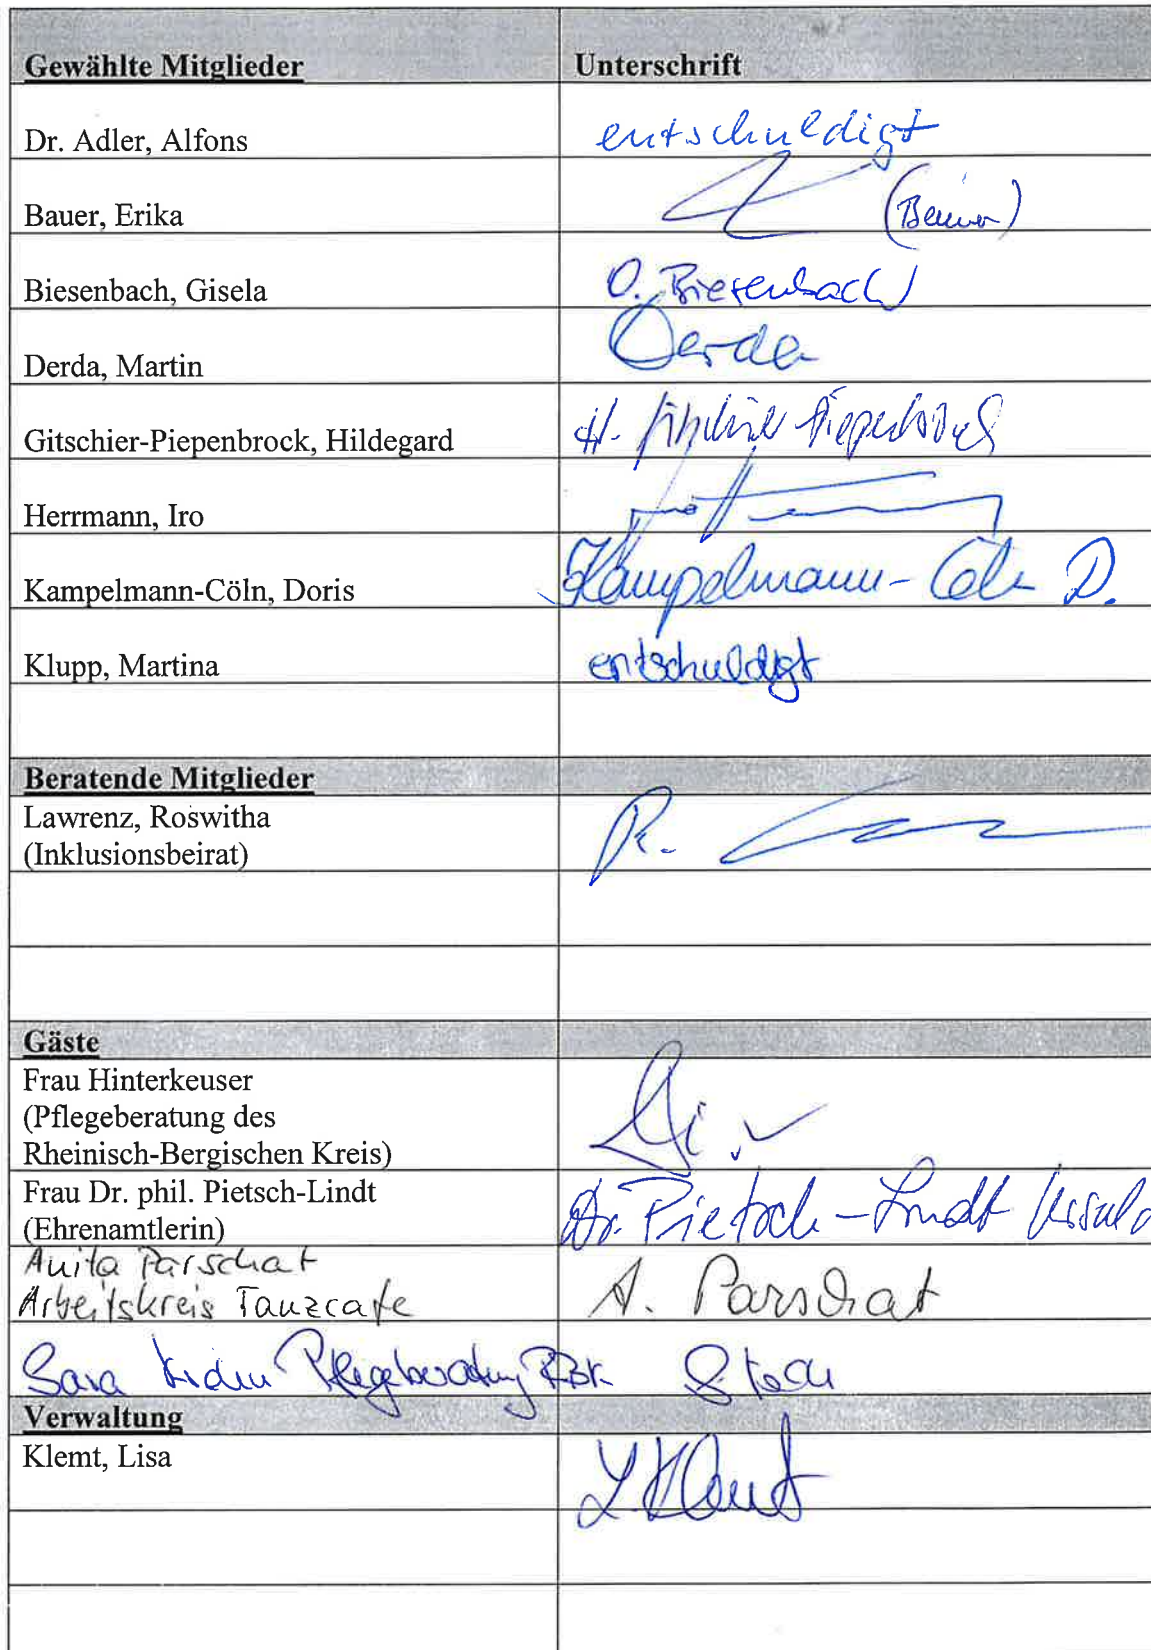 Gewählte Mitglieder Unterschrift
Dr. Adler, Alfons entschuldigt
Bauer, Erika
Biesenbach, Gisela Biesenbach
Derda, Martin Derda
Gitschier-Piepenbrock, Hildegard H. Piepenbrock
Herrmann, Iro
Kampelmann-Cöln, Doris Kampelmann-Cöln D.
Klupp, Martina entschuldigt
Beratende Mitglieder
Lawrenz, Roswitha
(Inklusionsbeirat) R.
Gäste
Frau Hinterkeuser
(Pflegeberatung des
Rheinisch-Bergischen Kreis)
Frau Dr. phil. Pietsch-Lindt
(Ehrenamtlerin) Dr. Pietsch-Lindt Ursula
Anita Parschat
Arbeitskreis Tanzcafe A. Parschat
Sara Pflegeberatung RBK
Verwaltung
Klemt, Lisa L. Klemt